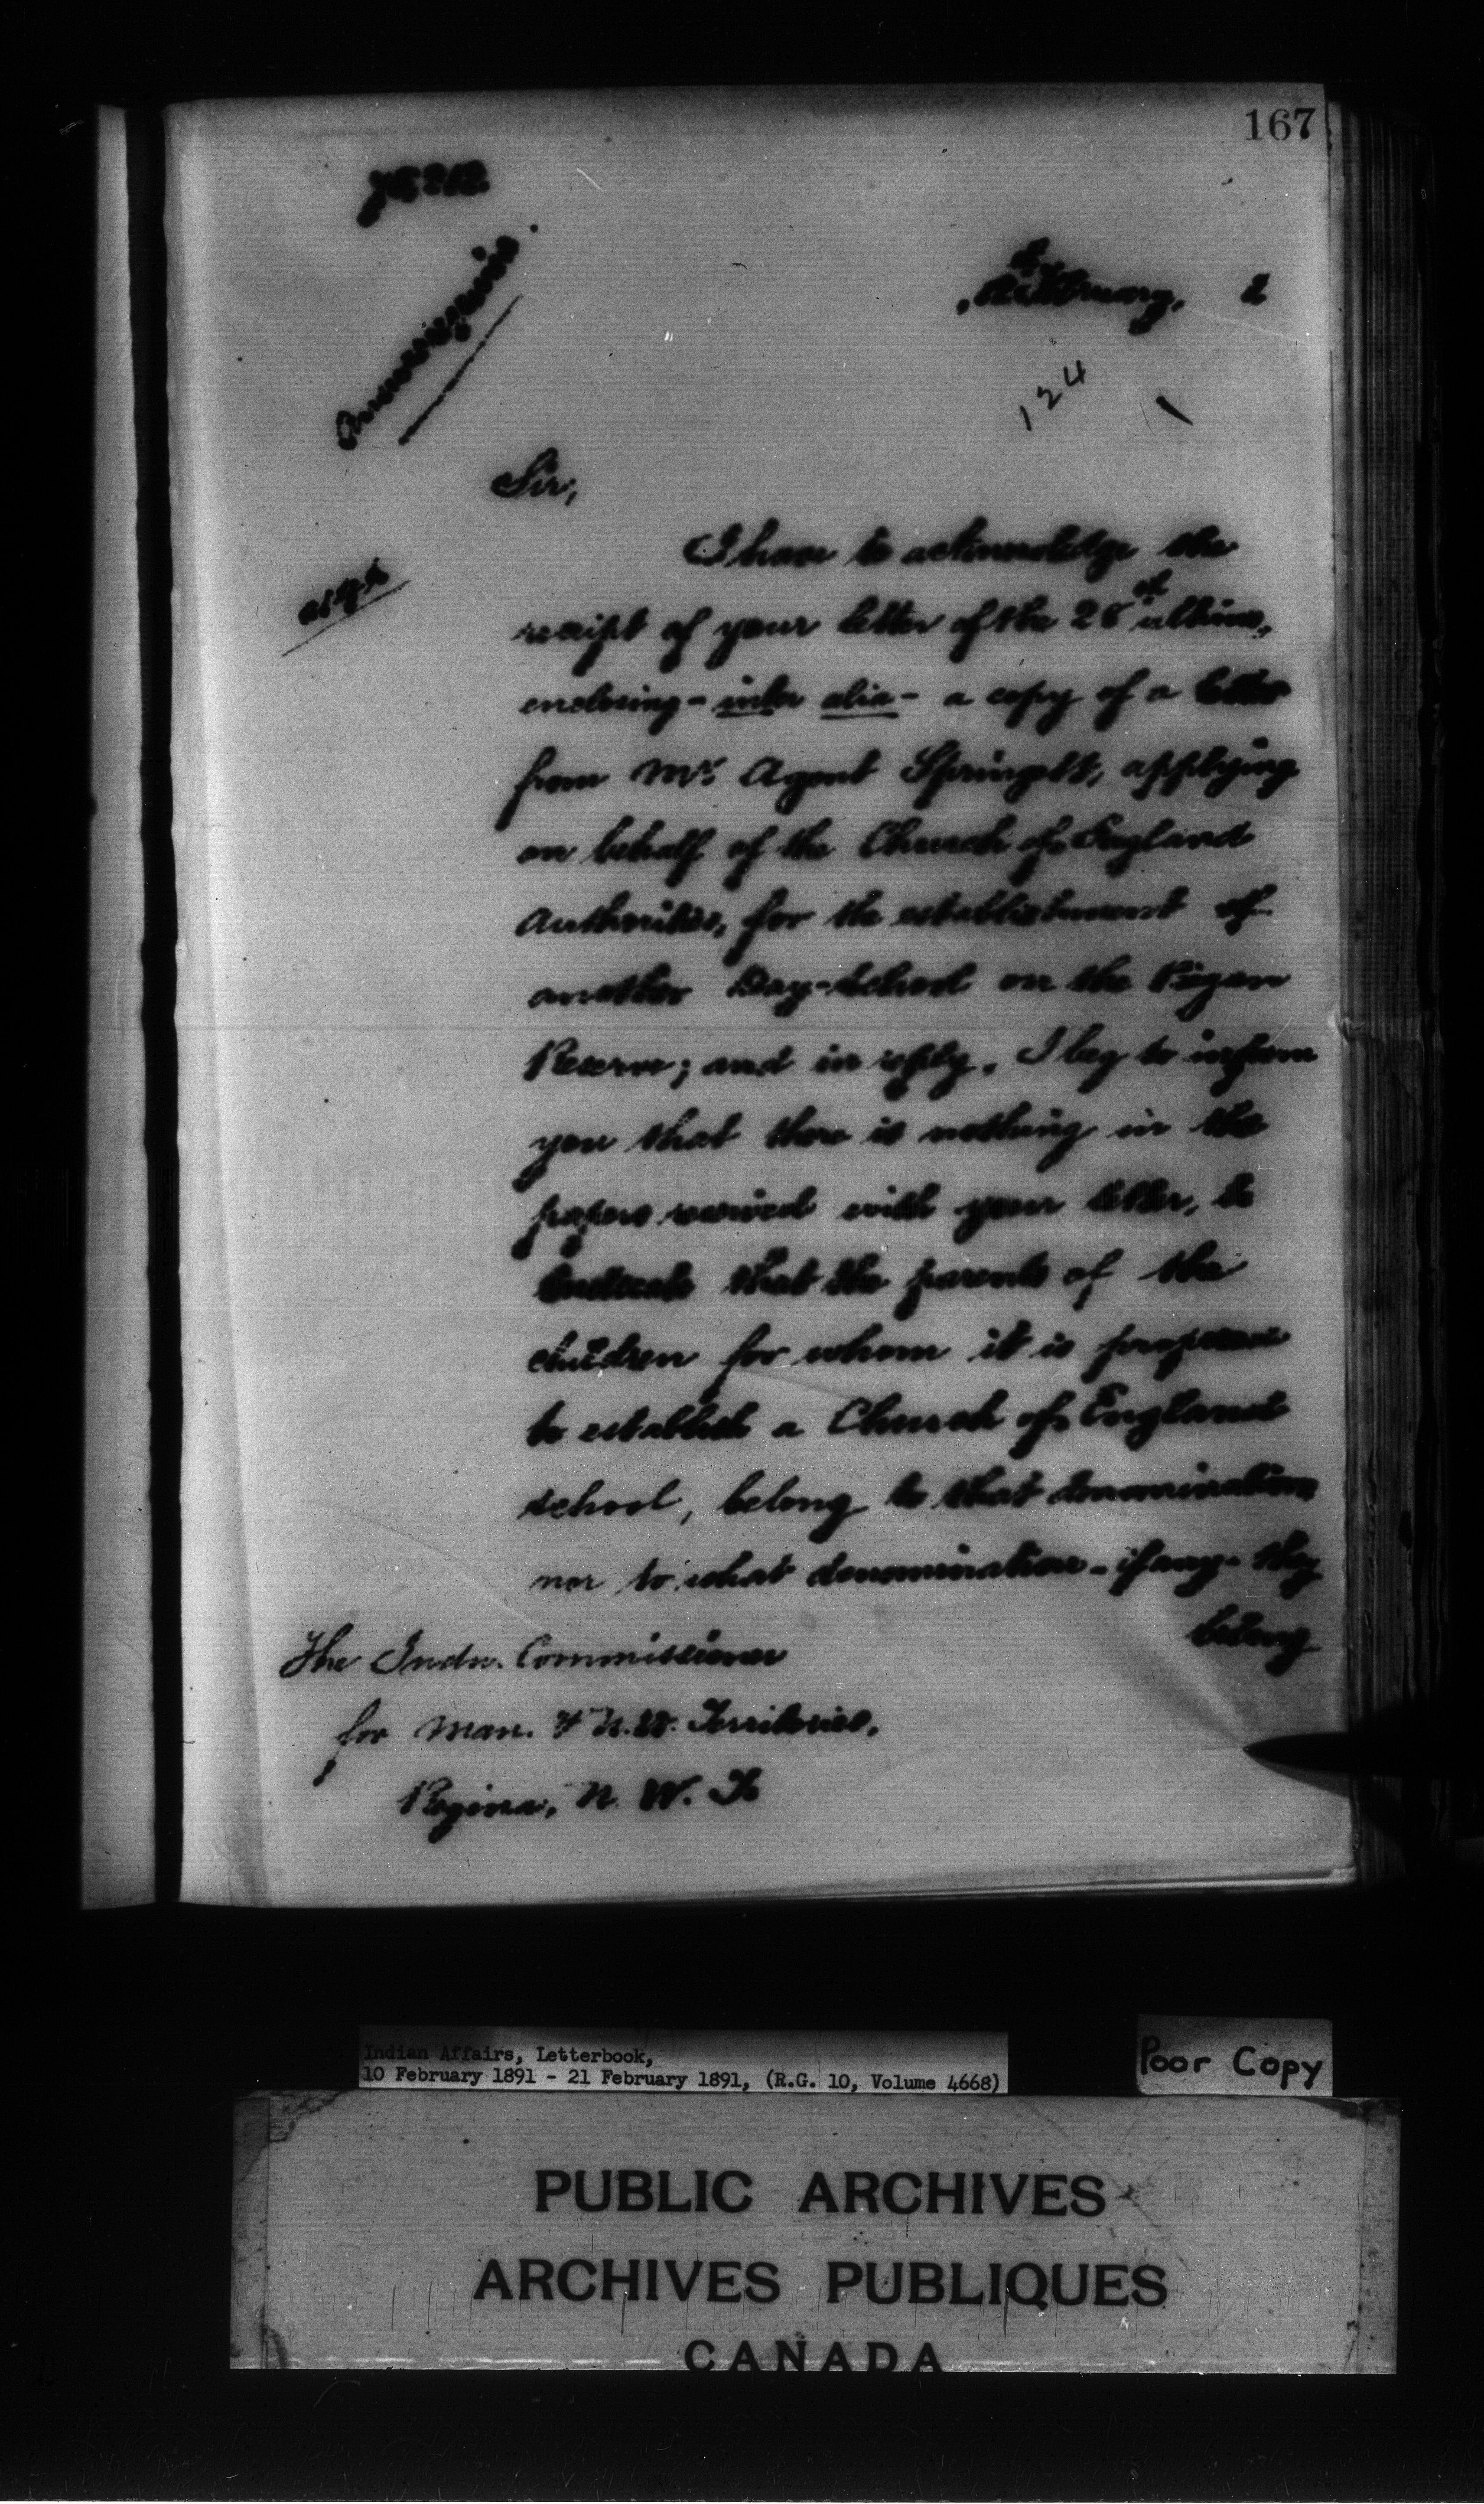 167
February, 2
124
Sir,
I have to acknowledge the
receipt of your letter of the 28th ultimo,
enclosing - inter alia - a copy of a letter
from Mr. Agent Springett, applying
on behalf of the Church of England
Authorities, for the establishment of
another Day-School on the Piegan
Reserve; and in reply, I beg to inform
you that there is nothing in the
papers received with your letter, to
indicate that the parents of the
children for whom it is proposed
to establish a Church of England
school, belong to that denomination
nor to what denomination - if any - they
belong
The Indn. Commissioner
for Man. & N.W. Territories,
Regina, N. W. T.
Indian Affairs, Letterbook,
10 February 1891 - 21 February 1891, (R.G. 10, Volume 4668)
Poor Copy
PUBLIC ARCHIVES
ARCHIVES PUBLIQUES
CANADA